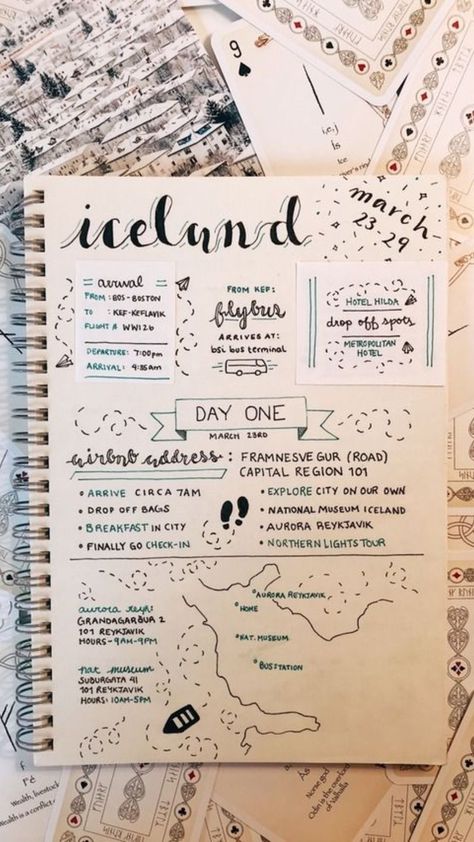 9
i,e,j
is
Ice
iceland
march
23-29
arrival
FROM: BOS-BOSTON
TO : KEF-KEFLAVIK
FLIGHT # WW126
DEPARTURE: 7:00pm
ARRIVAL: 4:35am
FROM KEF:
flybus
ARRIVES AT:
bsi bus terminal
HOTEL HILDA
drop off spots
METROPOLITAN
HOTEL
DAY ONE
MARCH 23RD
airbnb address : FRAMNESVEGUR (ROAD)
CAPITAL REGION 101
• ARRIVE CIRCA 7AM
• DROP OFF BAGS
• BREAKFAST IN CITY
• FINALLY GO CHECK-IN
• EXPLORE CITY ON OUR OWN
• NATIONAL MUSEUM ICELAND
• AURORA REYKJAVIK
• NORTHERN LIGHTS TOUR
aurora reyk:
GRANDAGARÐUR 2
101 REYKJAVIK
HOURS - 9AM-9PM
nat museum
SUÐURGATA 41
101 REYKJAVIK
HOURS: 10AM-5PM
AURORA REYKJAVIK
HOME
NAT. MUSEUM
BUSSTATION
Fé
Wealth, livestock
Wealth is a conflict
Norse god
Odin is the overlord
of Valhalla